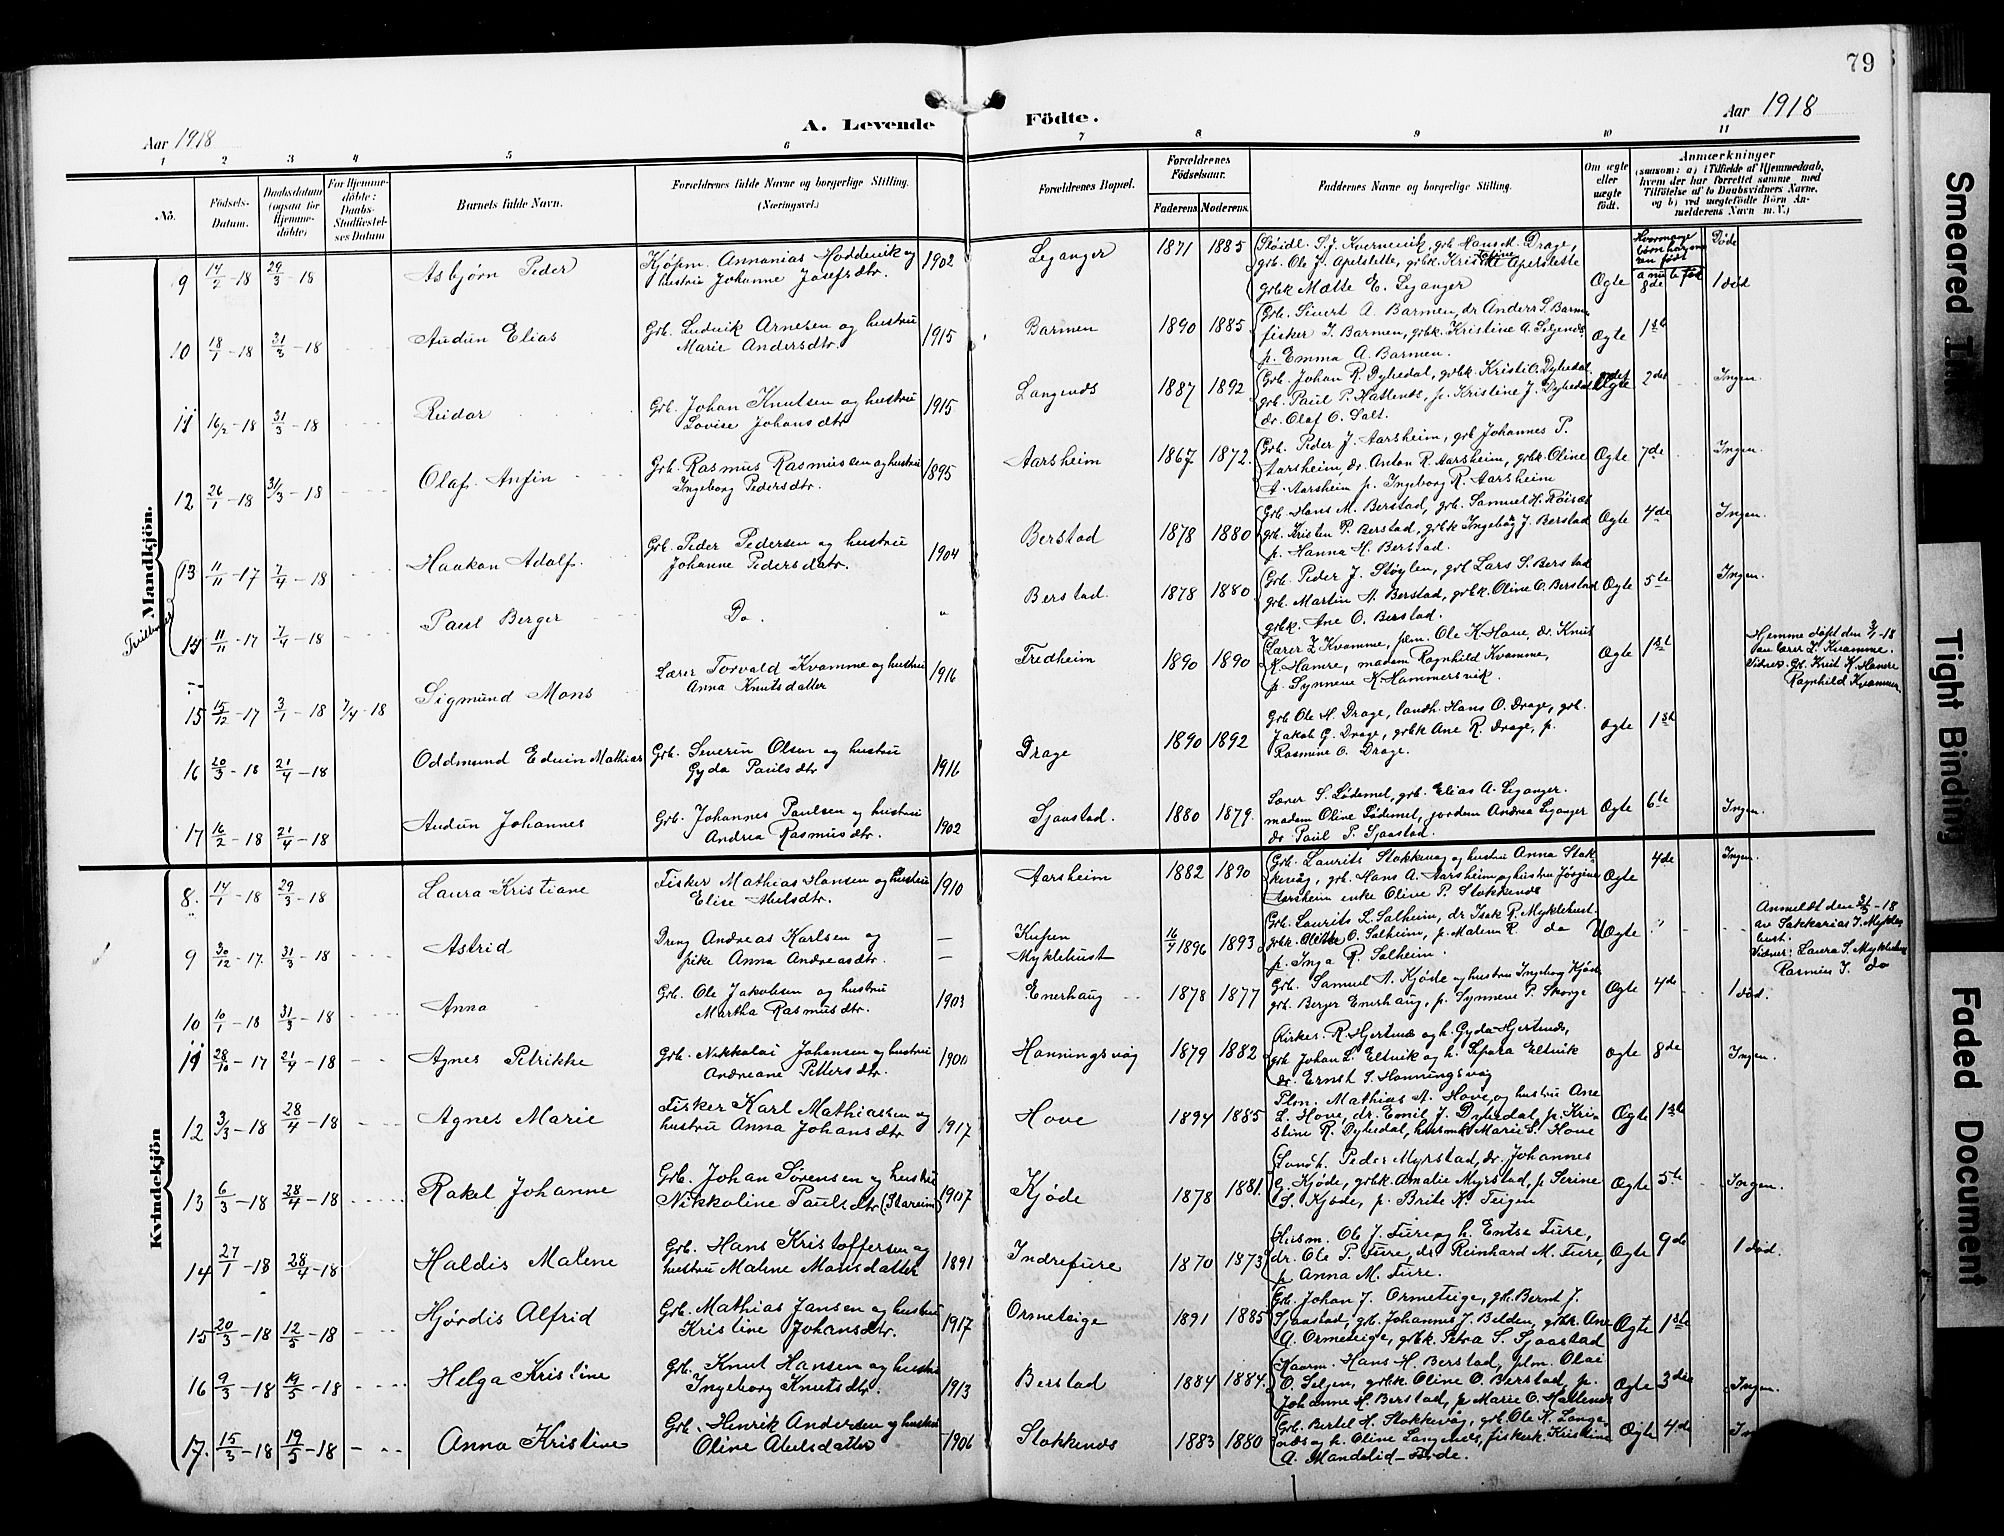 79
Aar 1918
A. Levende Födte.
Aar 1918
1 2 3 4 5 6 7 8 9 10 11
No.
Födsels-Datum.
Daabsdatum (ogsaa for Hjemmedöbte)
For Hjemmedöbte: Daabs-Stadfæstelses Datum
Barnets fulde Navn.
Forældrenes fulde Navne og borgerlige Stilling. (Næringsvei.)
Forældrenes Bopæl.
Forældrenes Födselsaar.
Faderens. Moderens.
Faddernes Navne og borgerlige Stilling.
Om ægte eller uægte født.
Anmærkninger
(saasom: a) i Tilfælde af Hjemmedaab, hvem der har forrettet samme med Tilföielse af to Daabsvidners Navne, og b) ved uægtefödte Börn Anmelderens Navn m. V.)
Mandkjön.
9 14/2-18 29/3-18 Asbjørn Peder
Kjøpm. Annanias Hoddevik og
hustru Johanne Josefsdtr. 1902
Leganger 1871 1885
grb. Ole J. Apelsette, grbk. Kristine Apelsette
grbk Mætte E. Leganger
Ægte 8de 1 død
10 18/1-18 31/3-18 Audun Elias
Grb. Ludvik Arnesen og hustru
Marie Andersdtr. 1915
Barmen 1890 1885
Grb. Sivert A. Barmen, dr Anders S. Barmen
fisker J. Barmen, grbk. Kristine A. Seljenes
p. Emma A. Barmen.
Ægte 1st
11 16/2-18 31/3-18 Reidar
Grb. Johan Knutsen og hustru
Lovise Johansdtr 1915
Langenes 1887 1892
Grb. Johan R. Dyhedal, grbk Kristi O. Dyhedal
grb. Paul P. Hattenes, p. Kristine J. Dyhedal
dr. Olaf O. Dalt.
Ægte 2det Ingen
12 26/1-18 31/3-18 Olaf Anfin
Grb. Rasmus Rasmussen og hustru
Ingeborg Pedersdtr. 1895
Aarsheim 1867 1872.
Grb. Peder J. Aarsheim, grb Johannes P.
Aarsheim, dr. Anton R. Aarsheim, grbk. Oline
A. Aarsheim p. Ingeborg R. Aarsheim
Ægte 7de Ingen
13 11/11-17 7/4-18 Haakon Adolf.
Grb. Peder Pedersen og hustru
Johanne Pedersdatr. 1904
Berstad 1878 1880
Grb. Hans M. Berstad, grb. Samuel H. Røiset
grb. Kristen P. Berstad, grbk Ingeborg J. Berstad
p. Hanna H. Berstad.
Ægte 4de Ingen
14 11/11-17 7/4-18 Paul Berger
Do. "
Berstad. 1878 1880
Grb. Peder J. Støylen, grb Lars S. Berstad
grb. Martin A. Berstad, grbk. Oline O. Berstad
grbk. Ane O. Berstad.
Ægte 5te Ingen
15 15/12-17 3/1-18 7/4-18 Sigmund Mons
Lærer Torvald Kvamme og hustru
Anna Knutsdatter 1916
Fredheim 1890 1890
Lærer L Kvamme, plm. Ole K. Hove, dr. Knut
K. Hamre, madam Ragnhild Kvamme,
p. Synneve K. Hammersvik.
Ægte 1st
Hjemme døpt den 3/1-18
Vidner: Gb. Krist K. Hamre
Ragnhild Kvamme
16 20/3-18 21/4-18 Oddmund Edvin Mathias
Grb. Severin Olsen og hustru
Gyda Paulsdtr 1916
Drage 1890 1892
Grb Ole H. Drage, landh. Hans O. Drage, grb.
Jakob G. Drage, grbk Ane R. Drage, p.
Rasmine O. Drage.
Ægte 1st
17 16/2-18 21/4-18 Audun Johannes
Grb. Johannes Paulsen og hustru
Andrea Rasmusdtr. 1902
Sjaastad. 1880 1879.
Lærer S. Lødemel, grb. Elias A. Leganger.
madam Oline Lødemel, jordem Andrea Leganger
dr. Paul P. Sjaastad.
Ægte 6te Ingen.
Kvindekjön
8. 14/1-18 29/3-18 Laura Kristiane
Fisker Mathias Hansen og hustru
Elise Nilsdtr. 1910
Aarsheim 1882 1890
Grb. Laurits Stokkevåg og hustru Anna Stok-
kevåg, grb. Hans A. Aarsheim og hustru Jørgine
Aarsheim enke Oline P. Stokkenes
Ægte 4de Ingen.
9 30/12-17. 31/3-18 Astrid
Dreng Andreas Karlsen og
pike Anna Andreasdtr.
Myklebust 16/9 1896 1893
Grb. Laurits L. Salheim, dr Isak R. Myklebust.
grbk. Olitta O. Salheim, p. Malena R do
p. Inga R. Salheim.
Uægte
Anmeldt den 31/3-18
av Sakkarias I. Mykle-
bust.
Vidner: Laura S. Myklebust
Rasmus I. do
10 10/1-18 31/3-18 Anna
Grb. Ole Jakobsen og hustru
Martha Rasmusdtr. 1903
Enerhaug 1878 1877
Grb. Samuel A. Kjøde og hustru Ingeborg Kjøde
grb. Berger Enerhaug, p. Synneve P. Skorge
Ægte 4de 1 død.
11 28/10-17 21/4-18 Agnes Petrikke
Grb. Nikkolai Johansen og hustru
Andreane Pettersdtr. 1900
Honningsvåg 1879 1882
Kirkes. R. Hjertnes og h. Gyda Hjertnes,
grb Johan L. Eltvik og h. Sepora Eltvik
dr. Ernst S. Honningsvåg
Ægte 8de Ingen.
12 3/3-18 28/4-18 Agnes Marie
Fisker Karl Mathiassen og
hustru Anna Johansdtr 1917
Hove 1894 1885
Plm. Mathias A. Hove, og hustru Ane
L. Hove, dr. Emil J. Dyhedal, p. Kri-
stine R. Dyhedal, Marie S. Hove
Ægte 1ste
13 6/3-18 28/4-18 Rakel Johanne
Grb. Johan Sørensen og hustru
Nikkoline Paulsdtr (Stareim) 1907
Kjøde 1878 1881.
Landh. Peder Myrstad, dr. Johannes
G. Kjøde, grbk. Amalie Myrstad, p. Serine
S. Kjøde, p. Brite K. Teigen
Ægte 5te Ingen.
14 27/1-18 28/4-18 Haldis Malene
Grb. Hans Kristoffersen og
hustru Malene Monsdatter 1891
Indrefure 1870 1873
Husm. Ole J. Fure og h. Entse Fure,
dr. Ole P. Fure, dr Reinhard M. Fure,
p. Anna M. Fure.
Ægte 9de 1 død.
15 20/3-18 12/5-18 Hjørdis Alfrid
Grb. Mathias Jansen og hustru
Kristine Johansdtr. 1917
Ormeteige 1891 1885
Grb. Johan J. Ormeteige, grb. Bernt J.
Sjaastad, grb. Johannes J. Belden, grbk. Ane
A. Ormeteige, grbk. Petra S. Sjaastad
Ægte 1ste
16 9/3-18 19/5-18 Helga Kristine
Grb. Knut Hansen og hustru
Ingeborg Knutsdtr. 1913
Berstad 1884 1884.
Kaarm. Hans H. Berstad, plm. Olai
O. Seljen, grbk Oline O. Berstad, p.
Johanne H. Berstad, p. Marie O. Hattenes
Ægte 3die Ingen.
17. 15/3-18 19/5-18 Anna Kristine
Grb. Henrik Andersen og hustru
Oline Abelsdatter 1906
Stokkenes 1883 1880
Grb. Bertel H. Stokkevåg, grb. Ole K. Lange-
nes og h. Oline Langenes, fiskerk. Kristine
A. Mandelid-Førde.
Ægte 4de
Smeared Ink
Tight Binding
Faded Document